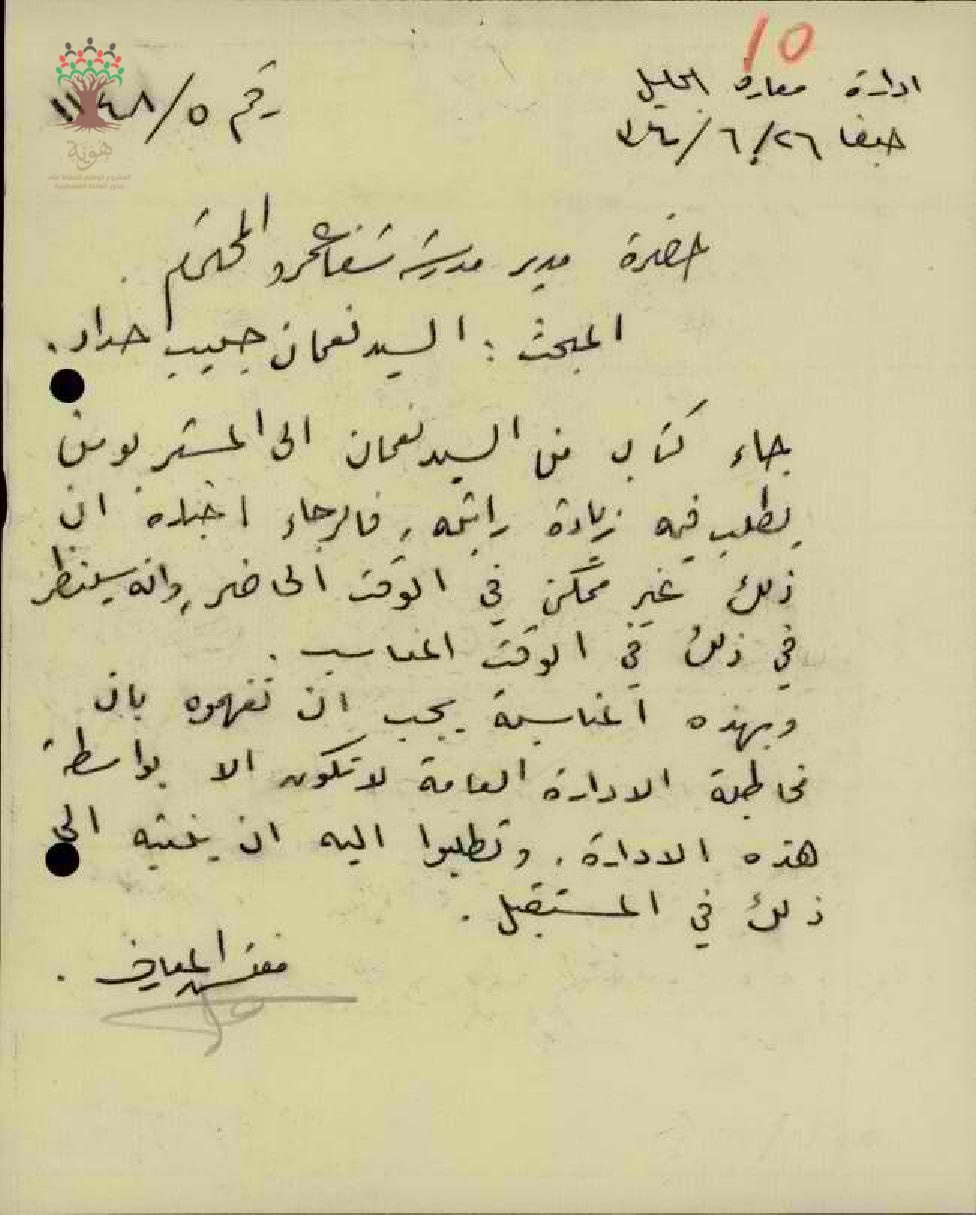 10
ادارة معارف الجليل
رقم ١١٤٨/٥
حيفا ٢٦/٦/
هوية
المشروع الوطني للحفاظ على
جذور العائلة الفلسطينية
حضرة مدير مدرسة شفاعمرو المحترم
المبحث : السيد نعمان حبيب حداد .
جاء كتاب من السيد نعمان الى المستر بومن
يطلب فيه زيادة راتبه ، فالرجاء اخباره ان
ذلك غير ممكن في الوقت الحاضر وانه سينظر
في ذلك في الوقت المناسب .
وبهذه المناسبة يجب ان تفهموه بان
مخاطبة الادارة العامة لا تكون الا بواسطة
هذه الادارة ، وتطلبوا اليه ان ينتبه الى
ذلك في المستقبل .
مفتش المعارف .